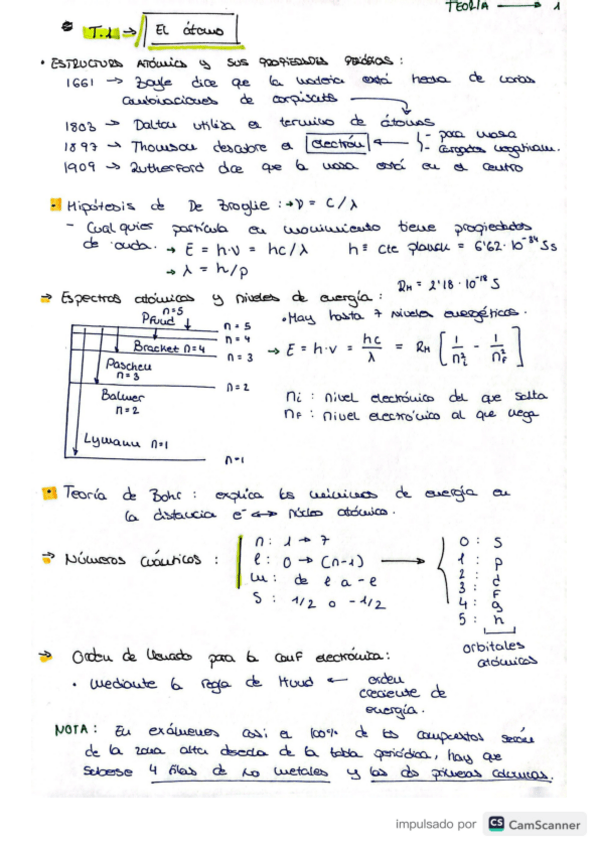 TEORÍA → 1
T.1 → El átomo
• ESTRUCTURA ATÓMICA y SUS PROPIEDADES PERIÓDICAS :
1661 → Boyle dice que la materia está hecha de varias
combinaciones de
1803 → Dalton utiliza el termino de átomos
1897 → Thomson descubre el electrón ← - poca masa
- cargados negativam.
1909 → Rutherford dice que la masa está en el centro
Hipótesis de De Broglie : → ν = c/λ
- Cualquier partícula en movimiento tiene propiedades
de onda. → E = h·ν = hc/λ h ≡ cte planck = 6'62·10⁻³⁴ Js
→ λ = h/p
⇒ Espectros atómicos y niveles de energía : RH = 2'18·10⁻¹⁸ J
• Hay hasta 7 niveles energéticos.
n=5
Pfund
n=5
n=4
Bracket n=4
n=3
→ E = h·ν = hc/λ = RH [1/ni² - 1/nF²]
Paschen
n=3
n=2
Balmer
n=2
ni : nivel electrónico del que salta
nF : nivel electrónico al que llega
Lymann n=1
n=1
Teoría de Bohr : explica los mínimos de energía en
la distancia e⁻ ↔ núcleo atómico.
⇒ Números cuánticos :
n : 1 → 7
l : 0 → (n-1) →
m : de l a -l
S : 1/2 o -1/2
0 : s
1 : p
2 : d
3 : F
4 : g
5 : h
orbitales
atómicos
⇒ Orden de llenado para la conF electrónica :
• mediante la regla de Hund ← orden
creciente de
energía.
NOTA : En exámenes casi el 100% de los compuestos serán
de la zona alta derecha de la tabla periódica, hay que
saberse 4 filas de no metales y las dos primeras columnas.
impulsado por CS CamScanner